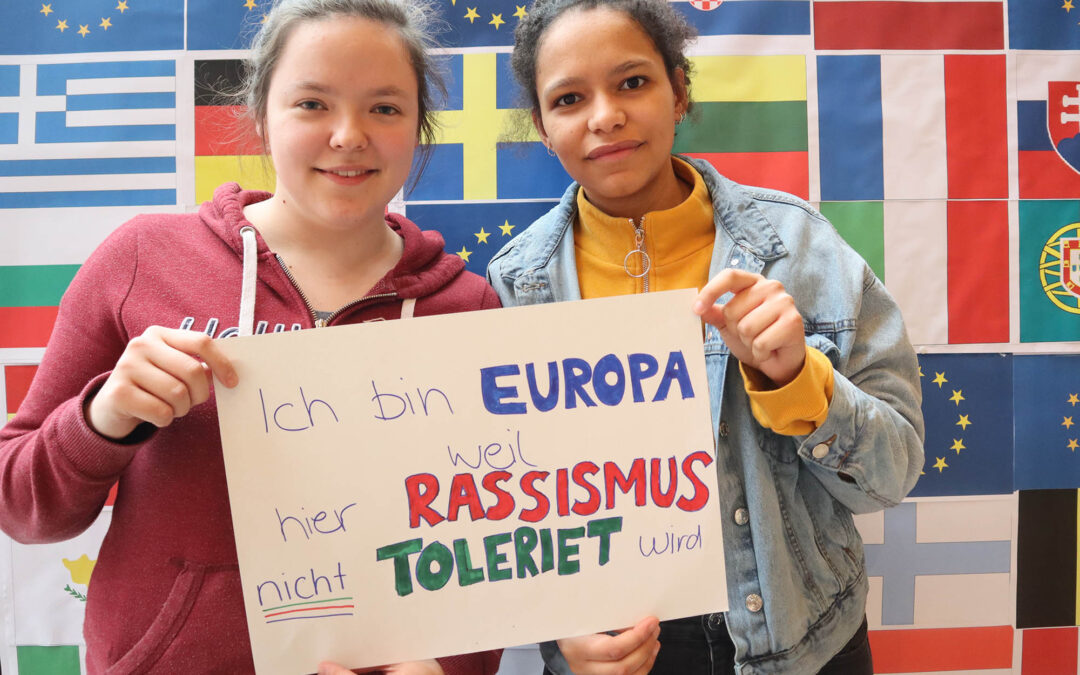 Ich bin EUROPA
weil
hier RASSISMUS
nicht TOLERIET wird